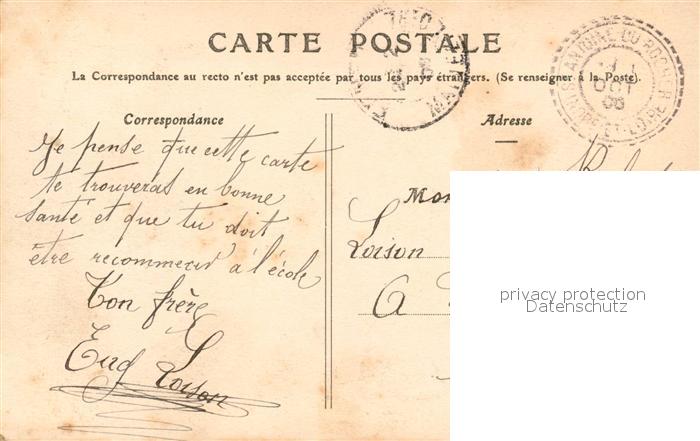 CARTE POSTALE
La Correspondance au recto n'est pas acceptée par tous les pays étrangers. (Se renseigner à la Poste).
Correspondance
Je pense que cette carte
te trouveras en bonne
santé et que tu doit
être recommencer à l'école
Ton frère
Eug Loison
Adresse
Mon
Loison
A
privacy protection
Datenschutz
ST ANTOINE DU ROCHER
INDRE-ET-LOIRE
1
OCT